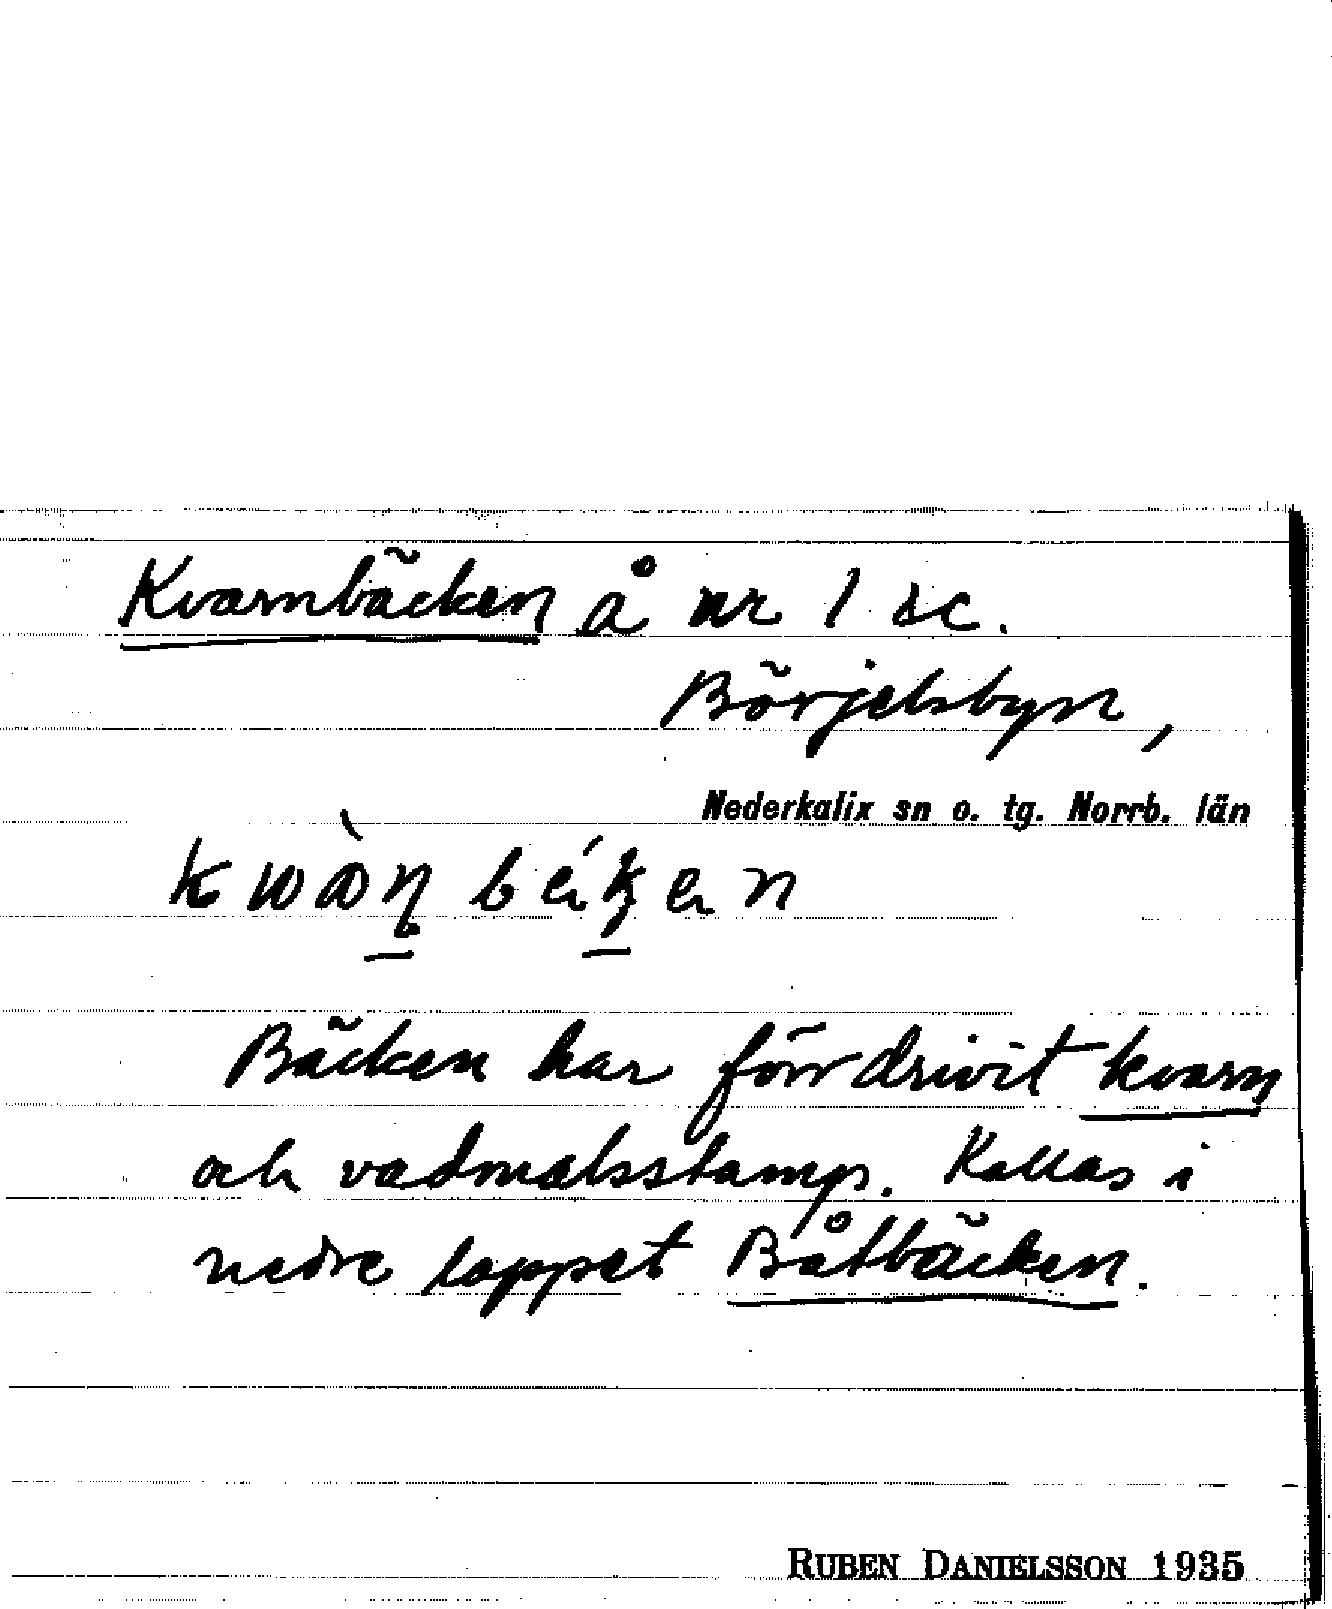 Kvarnbäcken å nr 1 &c.
Börjelsbyn,
Nederkalix sn o. tg. Norrb. län
kwàɳ béken
Bäcken har förr drivit kvarn
och vadmalsstamp. Kallas i
nedre loppet Båtbäcken.
RUBEN DANIELSSON 1935